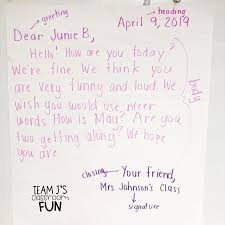 greeting
heading
April 9, 2019
Dear Junie B,
Hello! How are you today?
We're fine. We think you
are very funny and loud. We
wish you would use nicer
words. How is May? Are you
two getting along? We hope
you are
body
closing
Your friend,
Mrs. Johnson's Class
signature
TEAM J'S
classroom
FUN